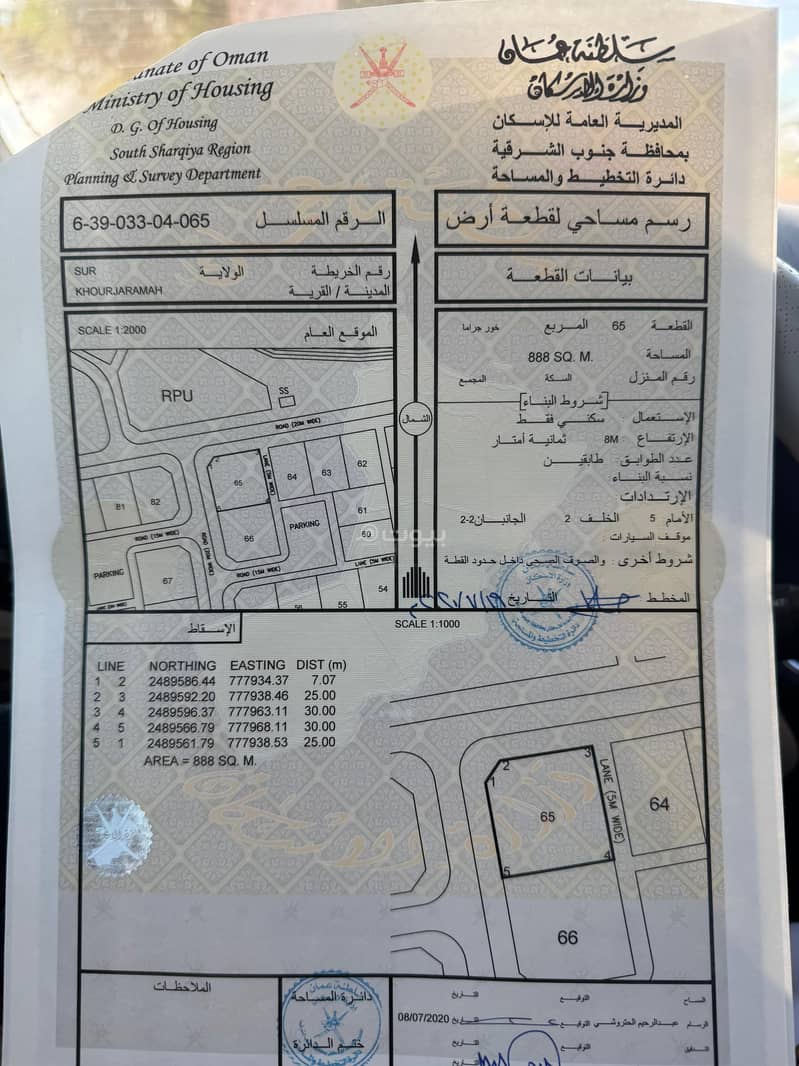 سلطنة عمان
وزارة الإسكان
المديرية العامة للإسكان
بمحافظة جنوب الشرقية
دائرة التخطيط والمساحة
anate of Oman
Ministry of Housing
D. G. Of Housing
South Sharqiya Region
Planning & Survey Department
رسم مساحي لقطعة أرض
الرقم المسلسل 6-39-033-04-065
بيانات القطعة
رقم الخريطة الولاية SUR
المدينة / القرية KHOURJARAMAH
القطعة 65 المربع خور جراما
المساحة 888 SQ. M.
رقم المنزل السكة المجمع
شروط البناء
الإستعمال : سكني فقط
الإرتفاع : 8M ثمانية أمتار
عدد الطوابق : طابقين
نسبة البناء
الإرتدادات
الأمام 5 الخلف 2 الجانبان 2-2
موقف السيارات :
شروط أخرى : والصرف الصحي داخل حدود القطة
المخطط التاريخ
الموقع العام SCALE 1:2000
RPU
SS
ROAD (20M WIDE)
LANE (5M WIDE)
65
64
63
62
61
60
66
PARKING
81
82
ROAD (15M WIDE)
ROAD (20M WIDE)
ROAD (15M WIDE)
LANE (5M WIDE)
PARKING
67
54
55
56
الشمال
بيوت
SCALE 1:1000
الإسقاط
LINE NORTHING EASTING DIST (m)
1 2 2489586.44 777934.37 7.07
2 3 2489592.20 777938.46 25.00
3 4 2489596.37 777963.11 30.00
4 5 2489566.79 777968.11 30.00
5 1 2489561.79 777938.53 25.00
AREA = 888 SQ. M.
1
2
3
4
5
65
LANE (5M WIDE)
64
66
الملاحظات
دائرة المساحة
ختم الدائرة
المساح التوقيع التاريخ
الرسام عبدالرحيم الحتروشي التوقيع التاريخ 08/07/2020
المدقق التوقيع التاريخ